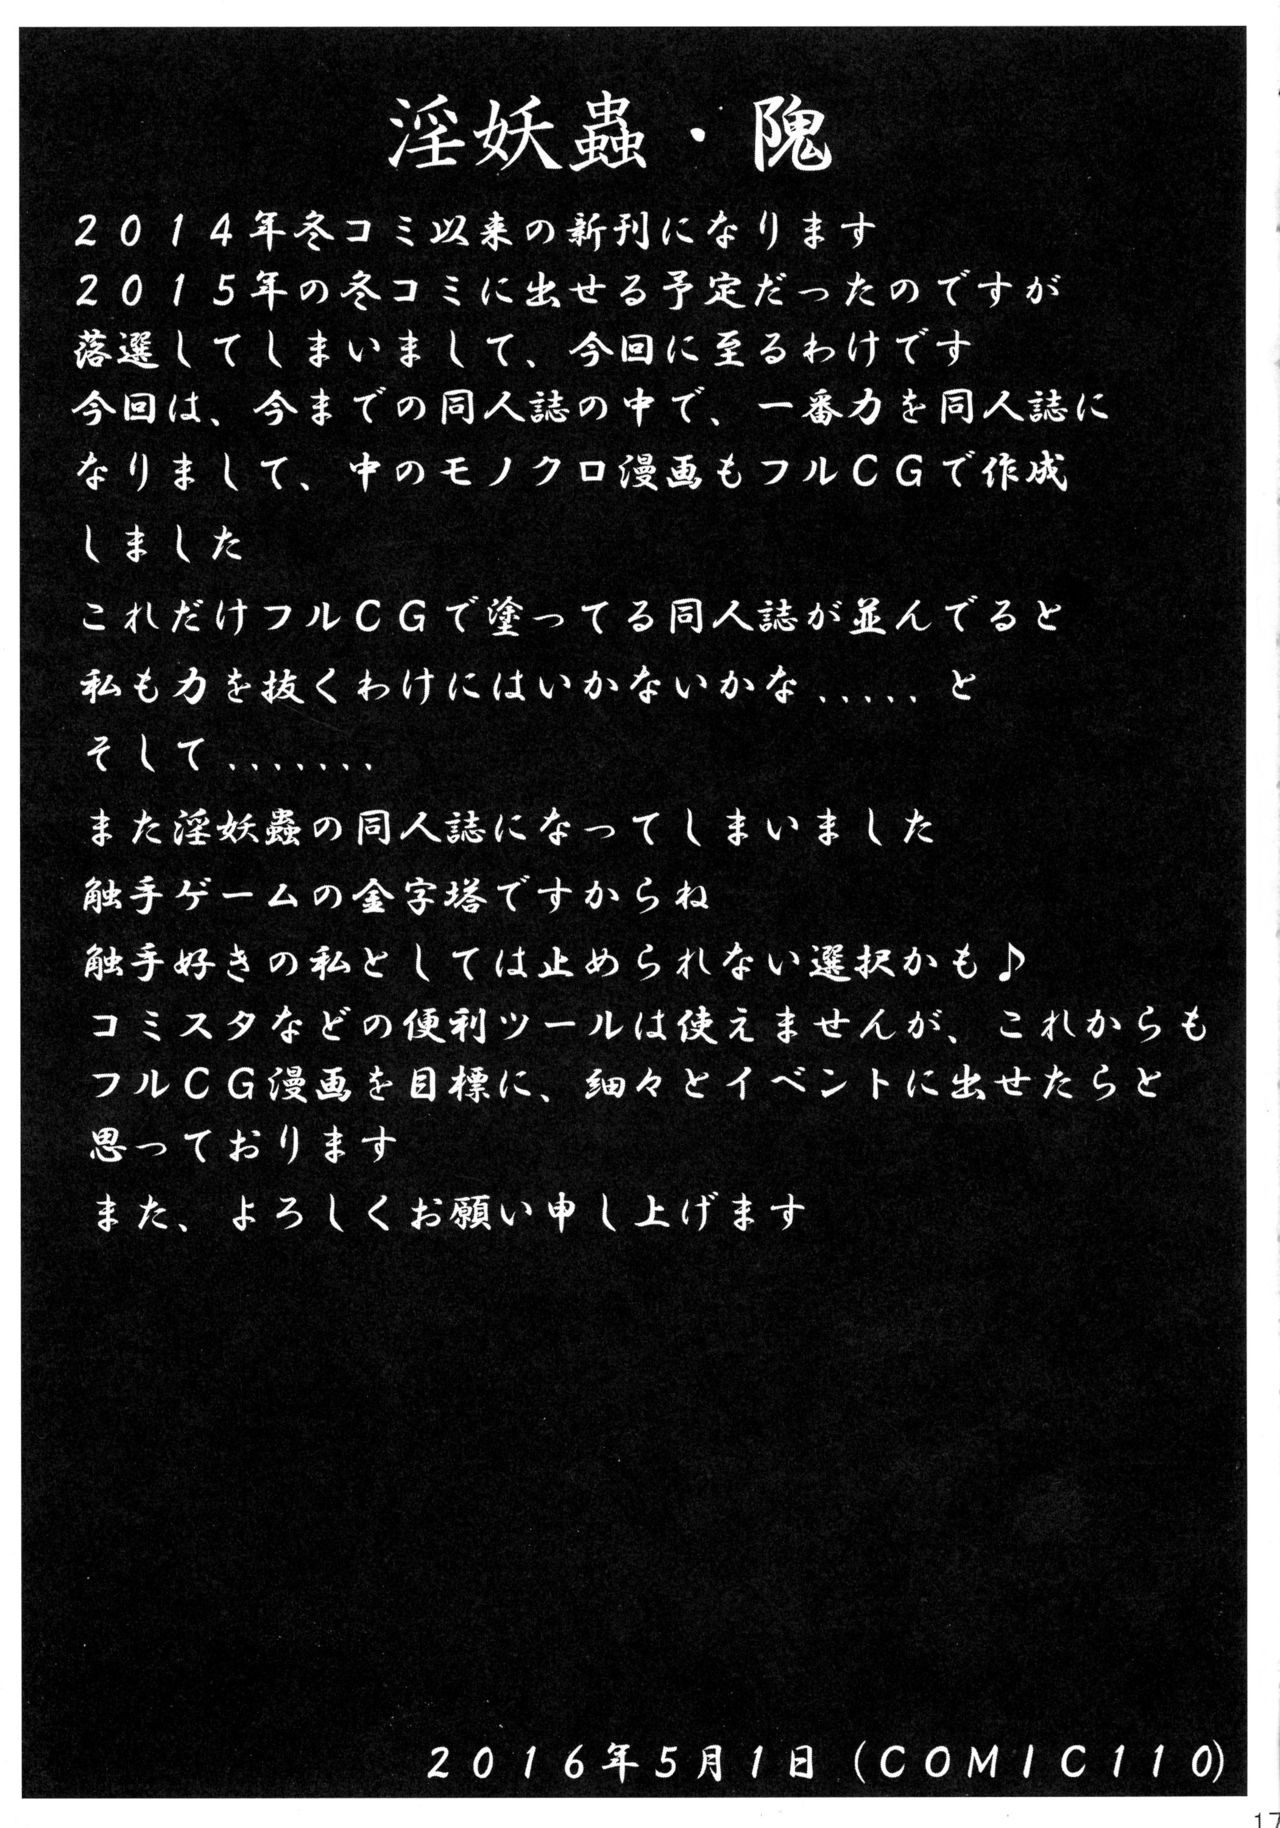 淫妖蟲・隗
2014年冬コミ以来の新刊になります
2015年の冬コミに出せる予定だったのですが
落選してしまいまして、今回に至るわけです
今回は、今までの同人誌の中で、一番力を同人誌に
なりまして、中のモノクロ漫画もフルCGで作成
しました
これだけフルCGで塗ってる同人誌が並んでると
私も力を抜くわけにはいかないかな.....と
そして.......
また淫妖蟲の同人誌になってしまいました
触手ゲームの金字塔ですからね
触手好きの私としては止められない選択かも♪
コミスタなどの便利ツールは使えませんが、これからも
フルCG漫画を目標に、細々とイベントに出せたらと
思っております
また、よろしくお願い申し上げます
2016年5月1日(COMIC110)
17